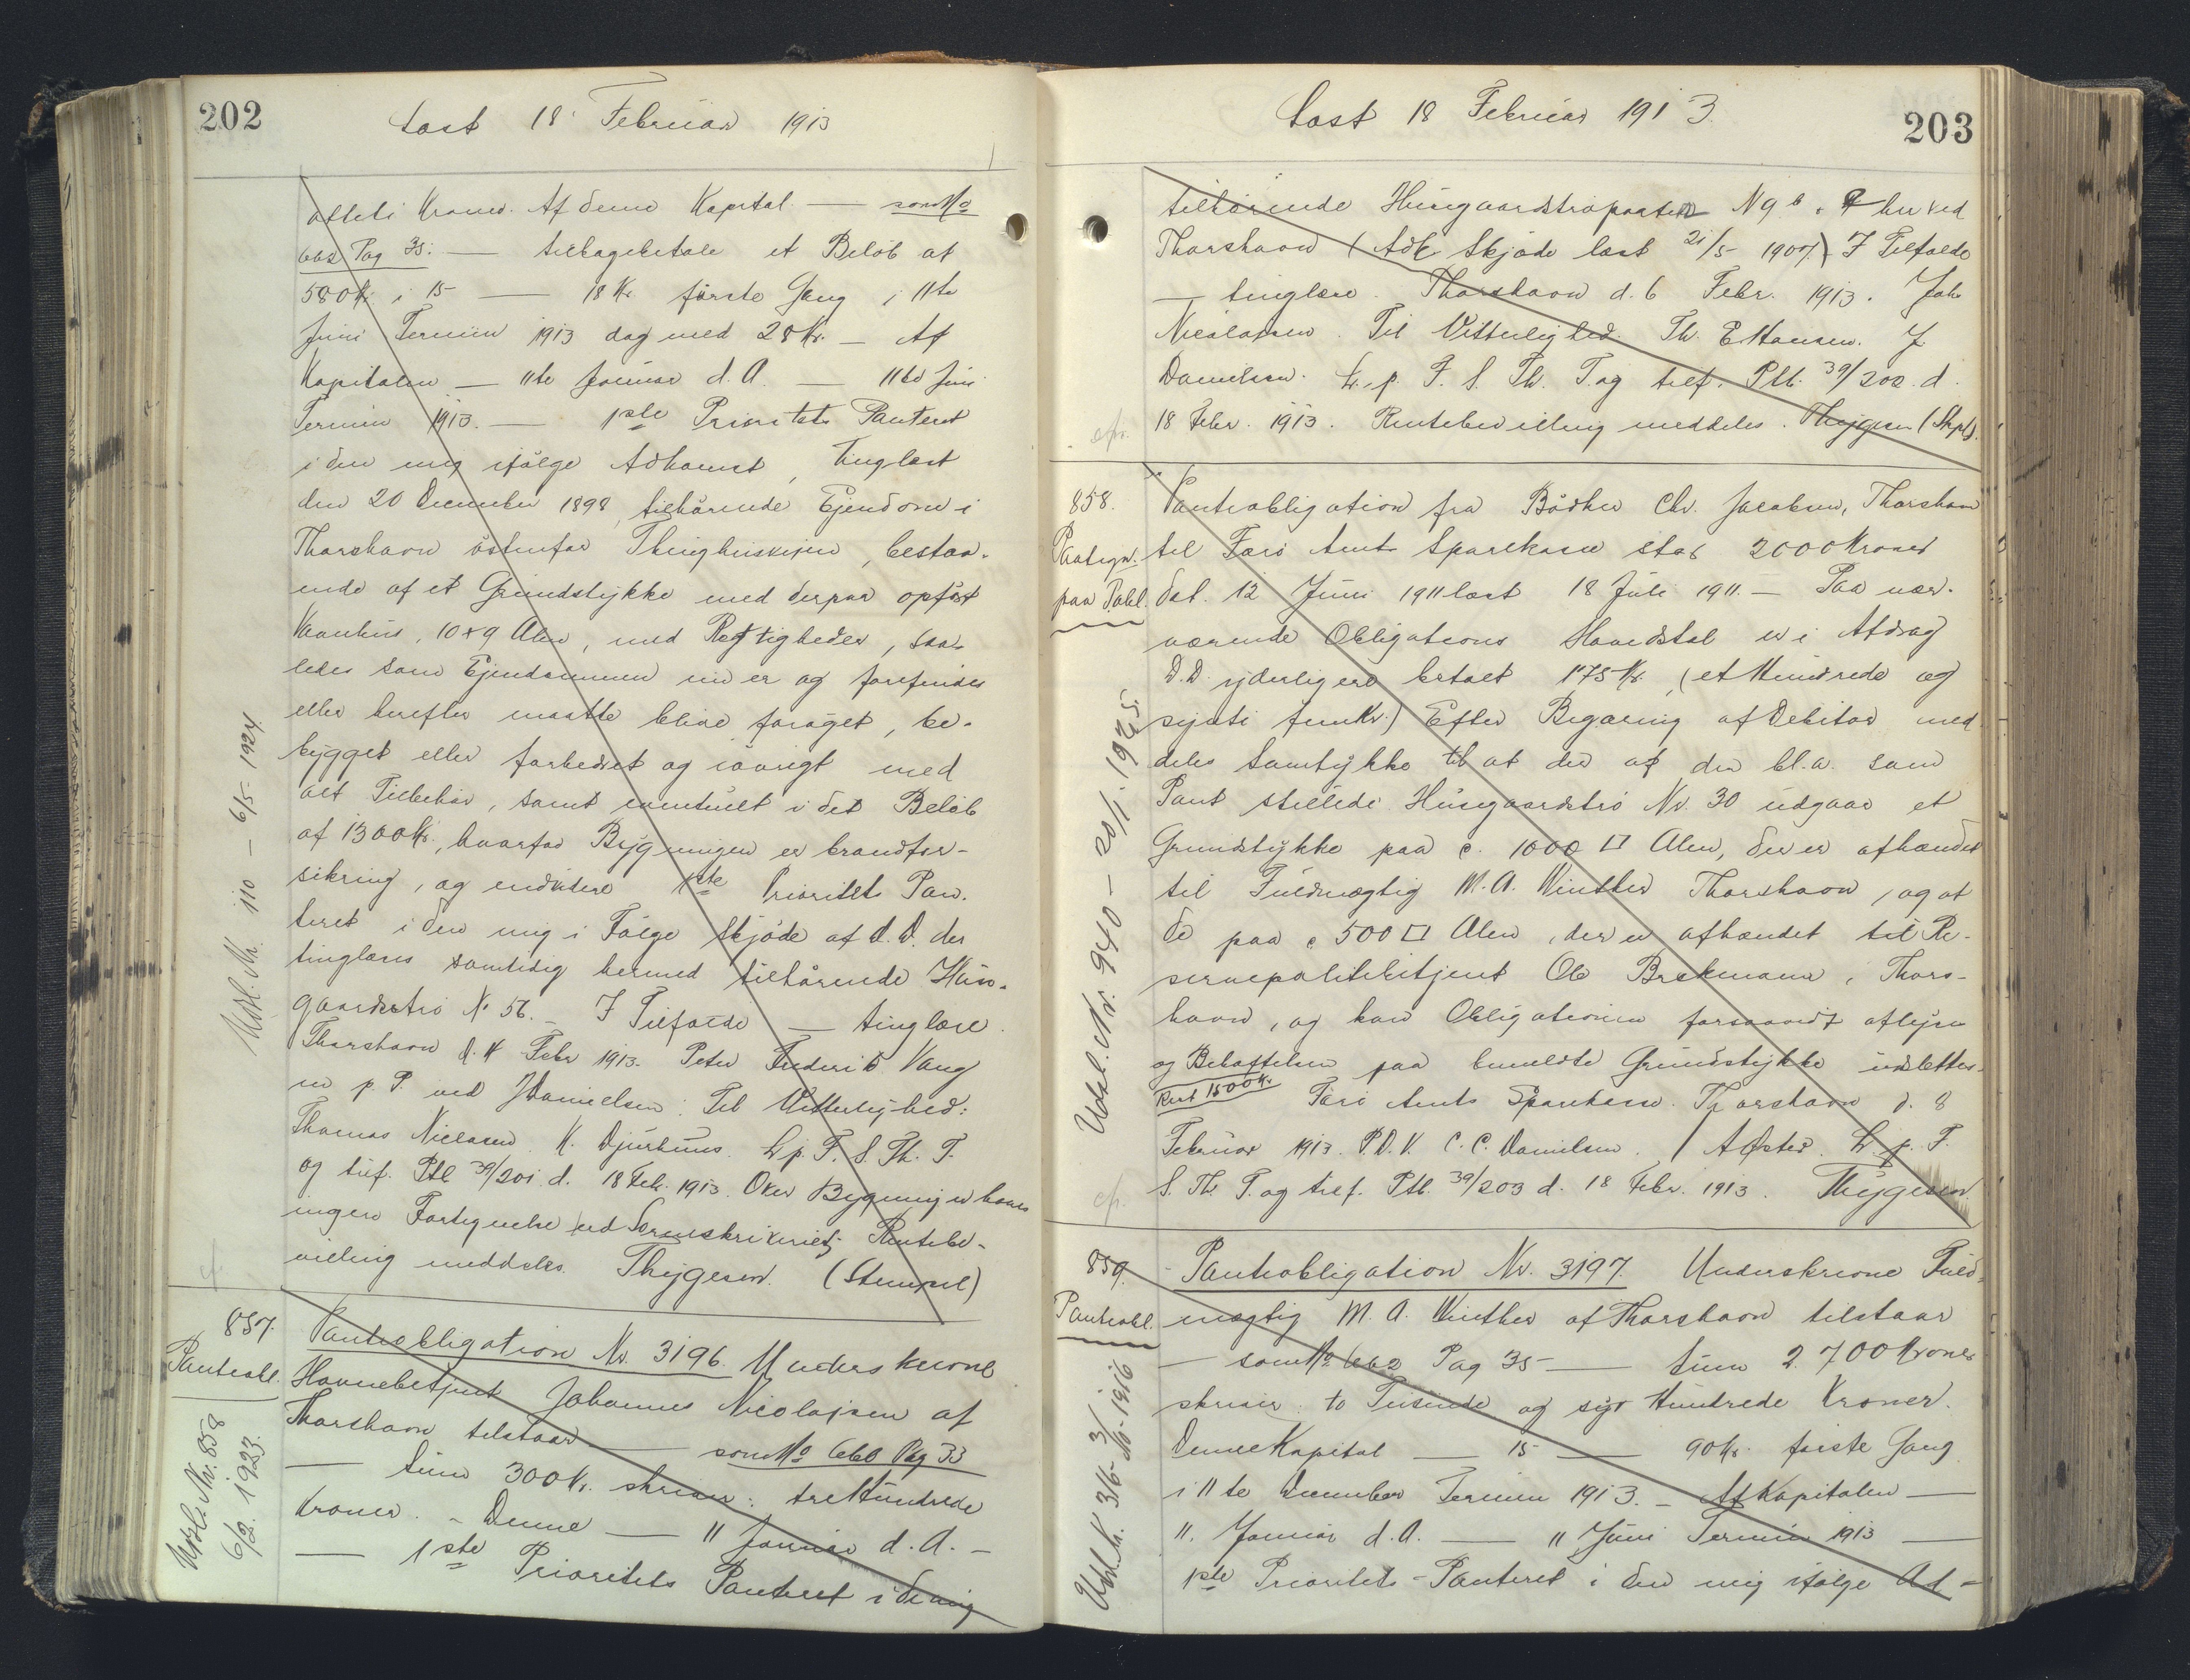 202
Læst 18 Februar 1913
otteti Kroner. Af denne Kapital — som No
662 Pag 35: — tilbagebetale et Beløb af
580 Kr i 15 — 18 Kr første Gang i 11te
Juni Termin 1913 dog med 28 Kr. — Af
Kapitalen — 11te Januar d. A. — 11te Juni
Termin 1913. — 1ste Prioritets Panteret
i den mig ifølge Adkomst, tinglæst
den 20 December 1898, tilhørende Ejendom i
Thorshavn østenfor Thinghusvejen, bestaa-
ende af et Grundstykke med derpaa opført
Vaanhus, 10 x 9 Alen, med Rettigheder, saa-
ledes som Ejendommen nu er og forefindes
eller herefter maatte blive forøget, be-
bygget eller forbedret og iøvrigt med
alt Tilbehør, samt eventuelt i det Beløb
af 1300 Kr., hvorfor Bygningen er brandfor-
sikring, og endvidere 1ste Prioritets Pan-
teret i den mig i Følge Skjøde af D. D. der
tinglæses samtidig hermed tilhørende Hus-
gaardstrø No 56. — I Tilfælde — tinglæse.
Thorshavn d. 4 Febr 1913. Peter Frederik Vang
m p. P. ved J Danielsen. Til Vitterlighed:
Thomas Niclasen K. Djurhuus. L. p. F. S. Th. T.
og tilf. Ptb 39/201. d. 18 Feb. 1913. Over Bygningen haves
ingen Fortegnelse ved Sorenskriveriet. Rentebe-
villing meddeles. Thygesen. (Stempel)
Udsl. No. 110 — 6/5 1924
cfr
857.
Panteobl.
Udsl. Nr. 858
6/2. 1923.
Panteobligation Nr. 3196. Underskrevne
Havnebetjent Johannes Nicolajsen af
Thorshavn tilstaar — som No 660 Pag 33
— Sum 300 Kr. skriver: tre Hundrede
Kroner. — Denne — 11 Januar d. A. —
— 1ste Prioritets Panteret i de mig
Læst 18 Februar 1913.
203
tilhørende Husgaardstropartier N 9 b
Thorshavn (Adk Skjøde læst 21/5 1907) I Tilfælde
— tinglæse. Thorshavn d. 6 Febr. 1913. Joh
Nicolajsen. Til Vitterlighed. Th. E Hansen. J.
Danielsen. L. p. F. S. Th. T. og tilf. Ptb. 39/202. d.
18 Febr. 1913. Rentebevilling meddeles. Thygesen (Stpl).
cfr.
858.
Pantegn.
paa Pobl.
Panteobligation fra Bødker Chr. Jacobsen, Thorshavn
til Færø Amts Sparekasse stor 2000 Kroner
dat. 12 Juni 1911 læst 18 Juli 1911. — Paa nær-
værende Obligations Hovedstol er i Afdrag
D. D. yderligere betalt 175 Kr. (et Hundrede og
syvti fem Kr.) Efter Begæring af Debitor med-
deles Samtykke til at der af den bl. a. som
Pant stillede Husgaardstrø Nr. 30 udgaar et
Grundstykke paa c. 1000 □ Alen, der er afhændet
til Fuldmægtig M. A. Winther Thorshavn, og at
do paa c 500 □ Alen, der er afhændet til Re-
servepolitibetjent Ole Brekmann i Thors-
havn, og kan Obligationen forsaavidt aflyses
og Behæftelsen paa bemeldte Grundstykke udslettes.
Rest 1500 Kr
Færø Amts Sparekasse. Thorshavn d. 8
Februar 1913. P. D. V. C. C. Danielsen. / A Øster. L. p. F.
S. Th. T. og tilf. Ptb. 39/203 d. 18 Febr. 1913. Thygesen
Udsl. Nr. 940 — 20/1. 1925.
cfr.
859.
Panteobl.
Panteobligation Nr. 3197. Underskrevne Fuld-
mægtig M. A. Winther af Thorshavn tilstaar
— som No 662 Pag 35 — Sum 2.700 Kroner
skriver: to Tusinde og syv Hundrede Kroner.
Denne Kapital — 15 — 90 Kr. første Gang
i 11te December Termin 1913. — Af Kapitalen —
11. Januar d. A. — 11 Juni Termin 1913 —
1ste Prioritets-Panteret i den mig ifølge Ad-